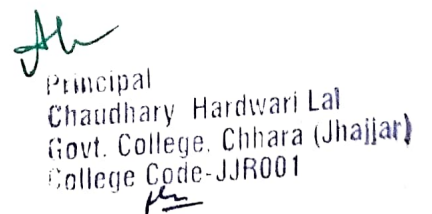 Principal
Chaudhary Hardwari Lal
Govt. College, Chhara (Jhajjar)
College Code-JJR001